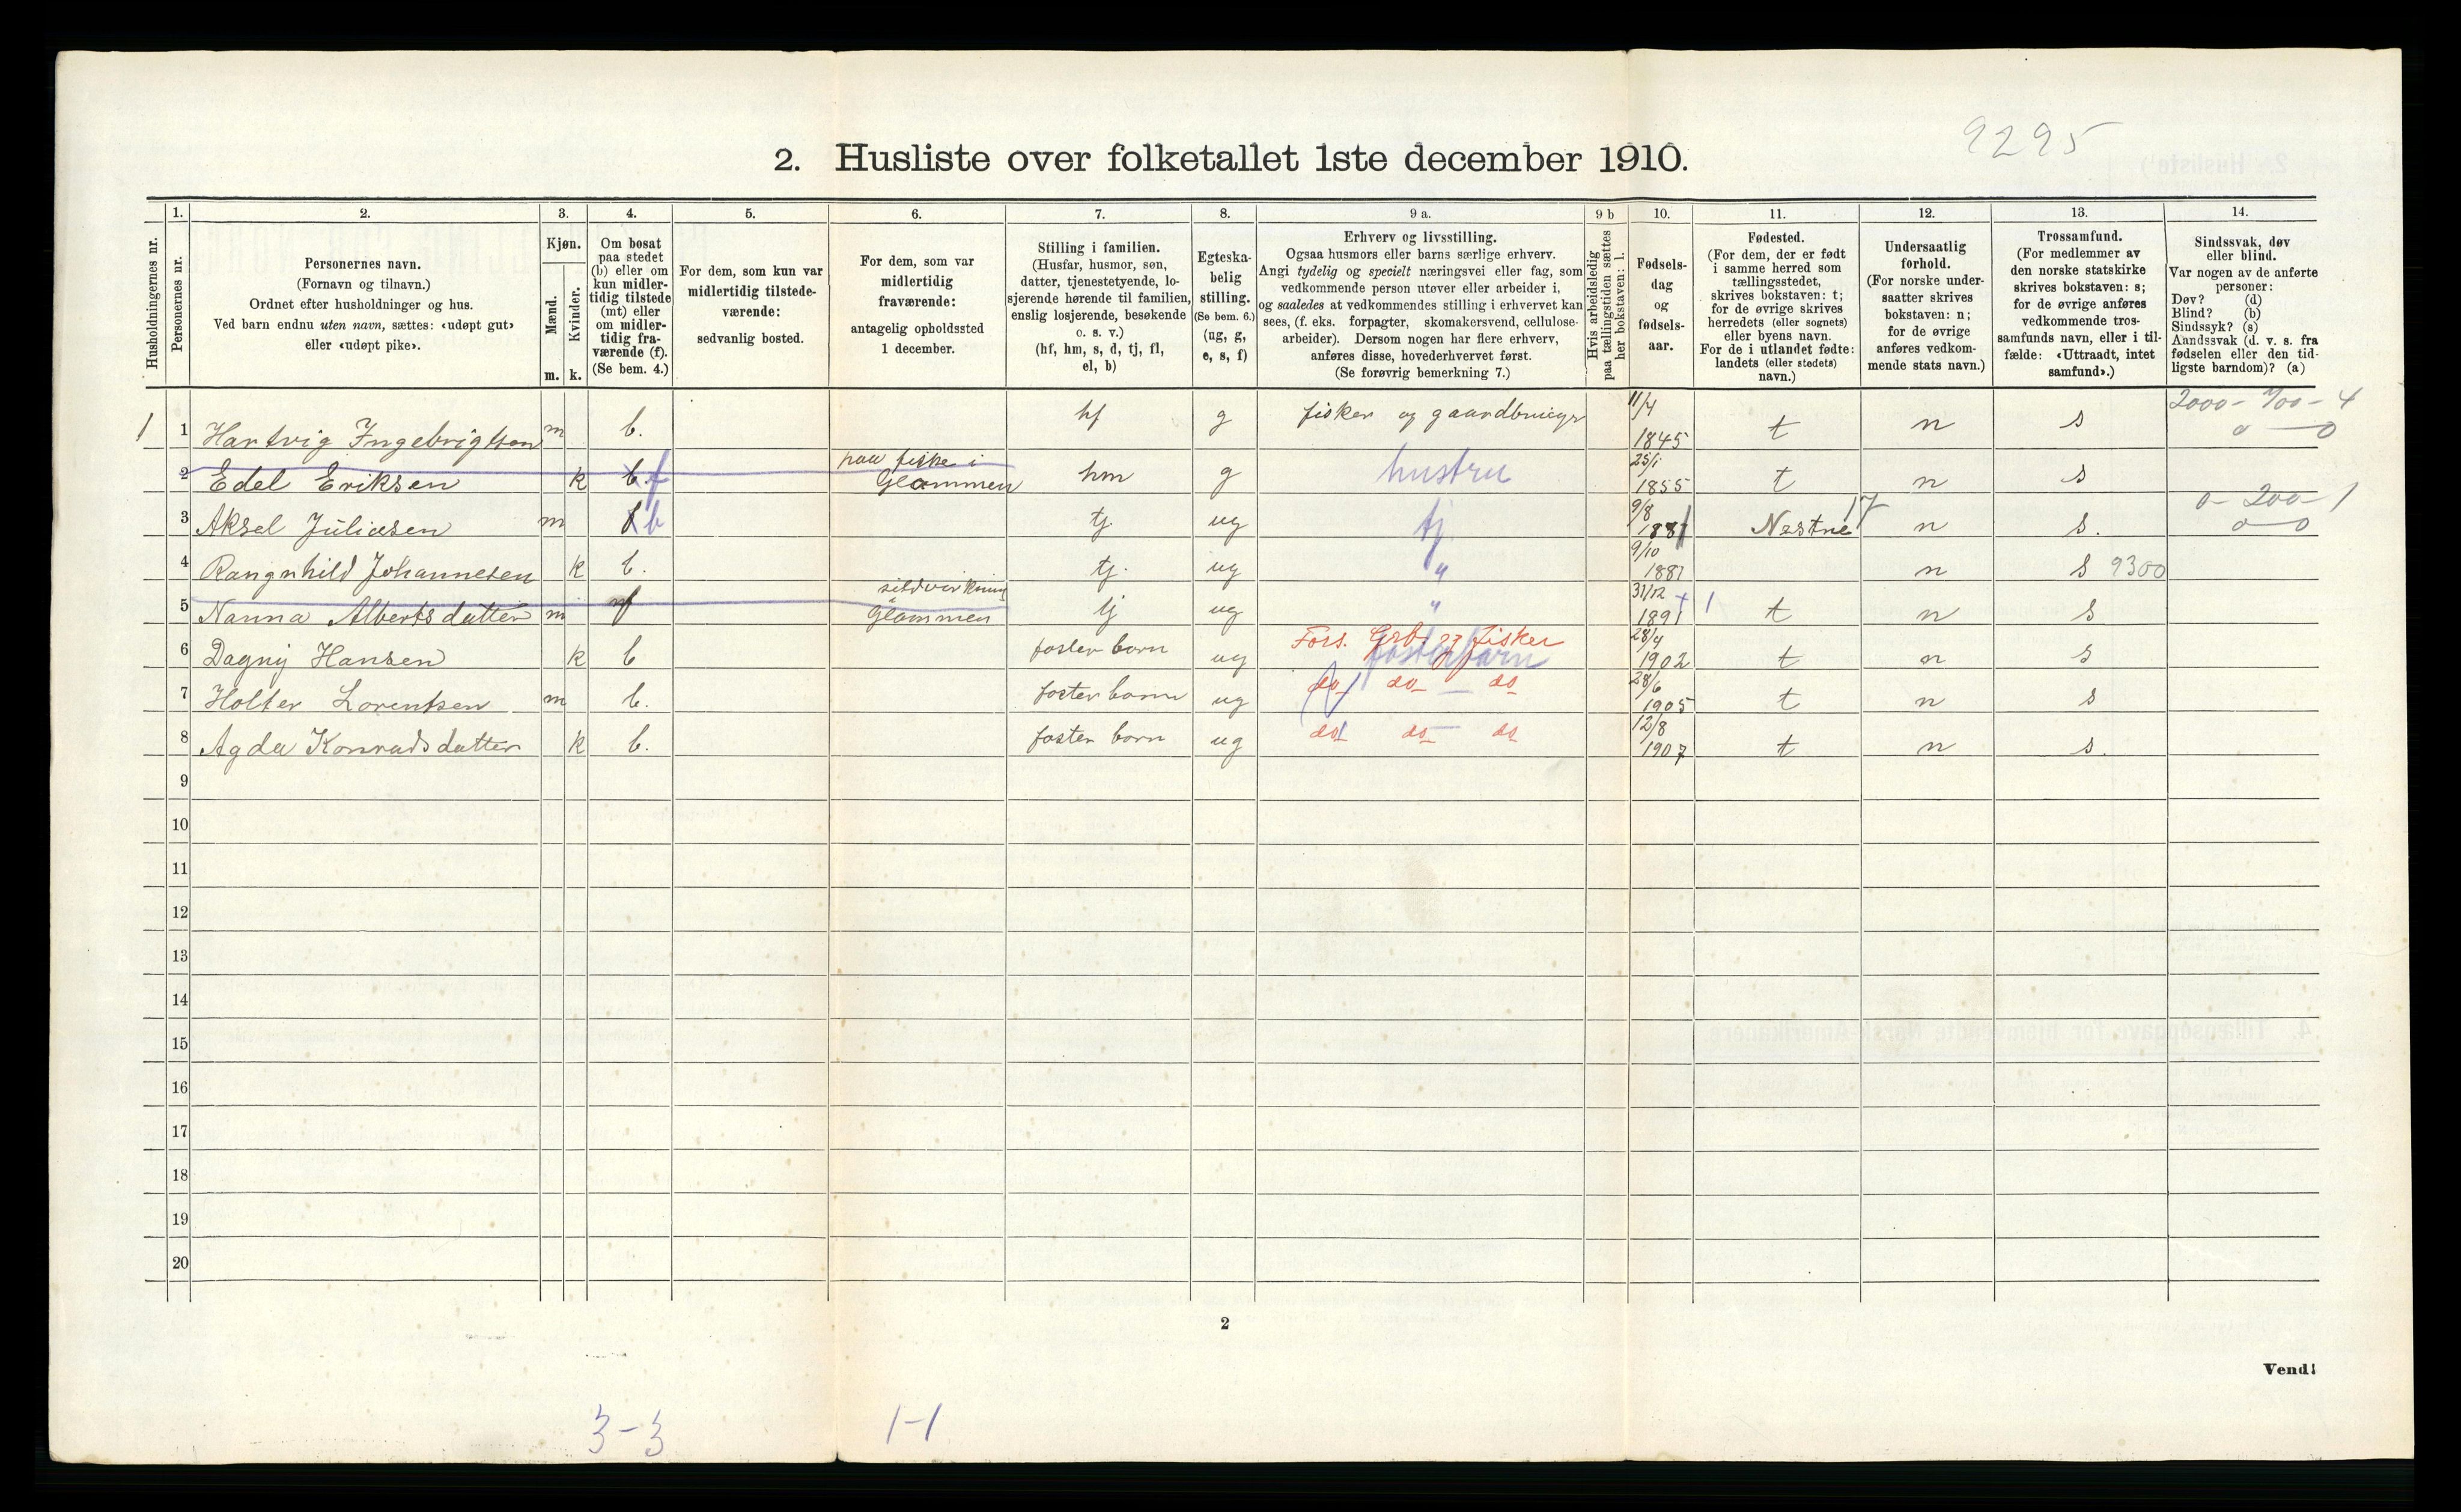 9295
2. Husliste over folketallet 1ste december 1910.
Husholdningernes nr.
1. Personernes nr.
2. Personernes navn.
(Fornavn og tilnavn.)
Ordnet efter husholdninger og hus.
Ved barn endnu uten navn, sættes: «udøpt gut»
eller «udøpt pike».
3. Kjøn.
Mænd. Kvinder.
m. k.
4. Om bosat
paa stedet
(b) eller om
kun midler-
tidig tilstede
(mt) eller
om midler-
tidig fra-
værende (f).
(Se bem. 4.)
5. For dem, som kun var
midlertidig tilstede-
værende:
sedvanlig bosted.
6. For dem, som var
midlertidig
fraværende:
antagelig opholdssted
1 december.
7. Stilling i familien.
(Husfar, husmor, søn,
datter, tjenestetyende, lo-
sjerende hørende til familien,
enslig losjerende, besøkende
o. s. v.)
(hf, hm, s, d, tj, fl,
el, b)
8. Egteska-
belig
stilling.
(Se bem. 6.)
(ug, g,
e, s, f)
9 a. Erhverv og livsstilling.
Ogsaa husmors eller barns særlige erhverv.
Angi tydelig og specielt næringsvei eller fag, som
vedkommende person utøver eller arbeider i,
og saaledes at vedkommendes stilling i erhvervet kan
sees, (f. eks. forpagter, skomakersvend, cellulose-
arbeider). Dersom nogen har flere erhverv,
anføres disse, hovederhvervet først.
(Se forøvrig bemerkning 7.)
9 b Hvis arbeidsledig
paa tællingstiden sættes
her bokstaven: l.
10. Fødsels-
dag
og
fødsels-
aar.
11. Fødested.
(For dem, der er født
i samme herred som
tællingsstedet,
skrives bokstaven: t;
for de øvrige skrives
herredets (eller sognets)
eller byens navn.
For de i utlandet fødte:
landets (eller stedets)
navn.)
12. Undersaatlig
forhold.
(For norske under-
saatter skrives
bokstaven: n;
for de øvrige
anføres vedkom-
mende stats navn.)
13. Trossamfund.
(For medlemmer av
den norske statskirke
skrives bokstaven: s;
for de øvrige anføres
vedkommende tros-
samfunds navn, eller i til-
fælde: «Uttraadt, intet
samfund».)
14. Sindssvak, døv
eller blind.
Var nogen av de anførte
personer:
Døv? (d)
Blind? (b)
Sindssyk? (s)
Aandssvak (d. v. s. fra
fødselen eller den tid-
ligste barndom)? (a)
1 1 Hartvig Ingebrigtsen m b. hf g fisker og gaardbruger 11/4 1845 t n s 2000- 700- 4
0 — 0
2 Edel Eriksen k b f paa fiske i Glommen hm g hustru 25/1 1855 t n s
3 Aksel Juliusen m b tj. ug tj 9/8 1881 Nestne 17 n s. 0- 200- 1
0 — 0
4 Rangnhild Johannesen k b. tj. ug " 9/10 1881 n s 9300
5 Nanna Albertsdatter m f sildvirkning Glommen tj ug " 31/12 1891 t n s
6 Dagny Hansen k b foster born ug Fors. Grbr. og fisker fosterbarn 28/4 1902 t n s
7 Holter Lorentsen m b. foster born ug do do — do 28/6 1905 t n s
8 Agda Konradsdatter k b. foster born ug do do do 12/8 1907 t n s.
9
10
11
12
13
14
15
16
17
18
19
20
2
Vend!
3-3 1-1